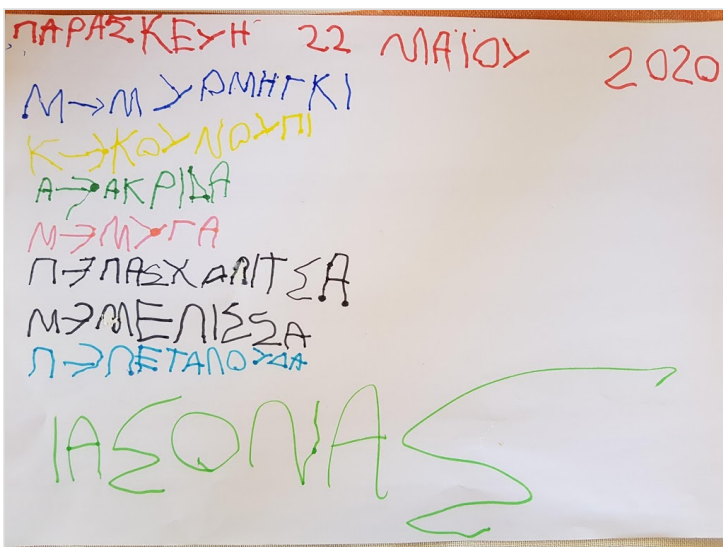 ΠΑΡΑΣΚΕΥΗ 22 ΜΑΪΟΥ 2020
Μ→ΜΥΡΜΗΓΚΙ
Κ→ΚΟΥΝΟΥΠΙ
Α→ΑΚΡΙΔΑ
Μ→ΜΥΓΑ
Π→ΠΑΣΧΑΛΙΤΣΑ
Μ→ΜΕΛΙΣΣΑ
Π→ΠΕΤΑΛΟΥΔΑ
ΙΑΣΟΝΑΣ